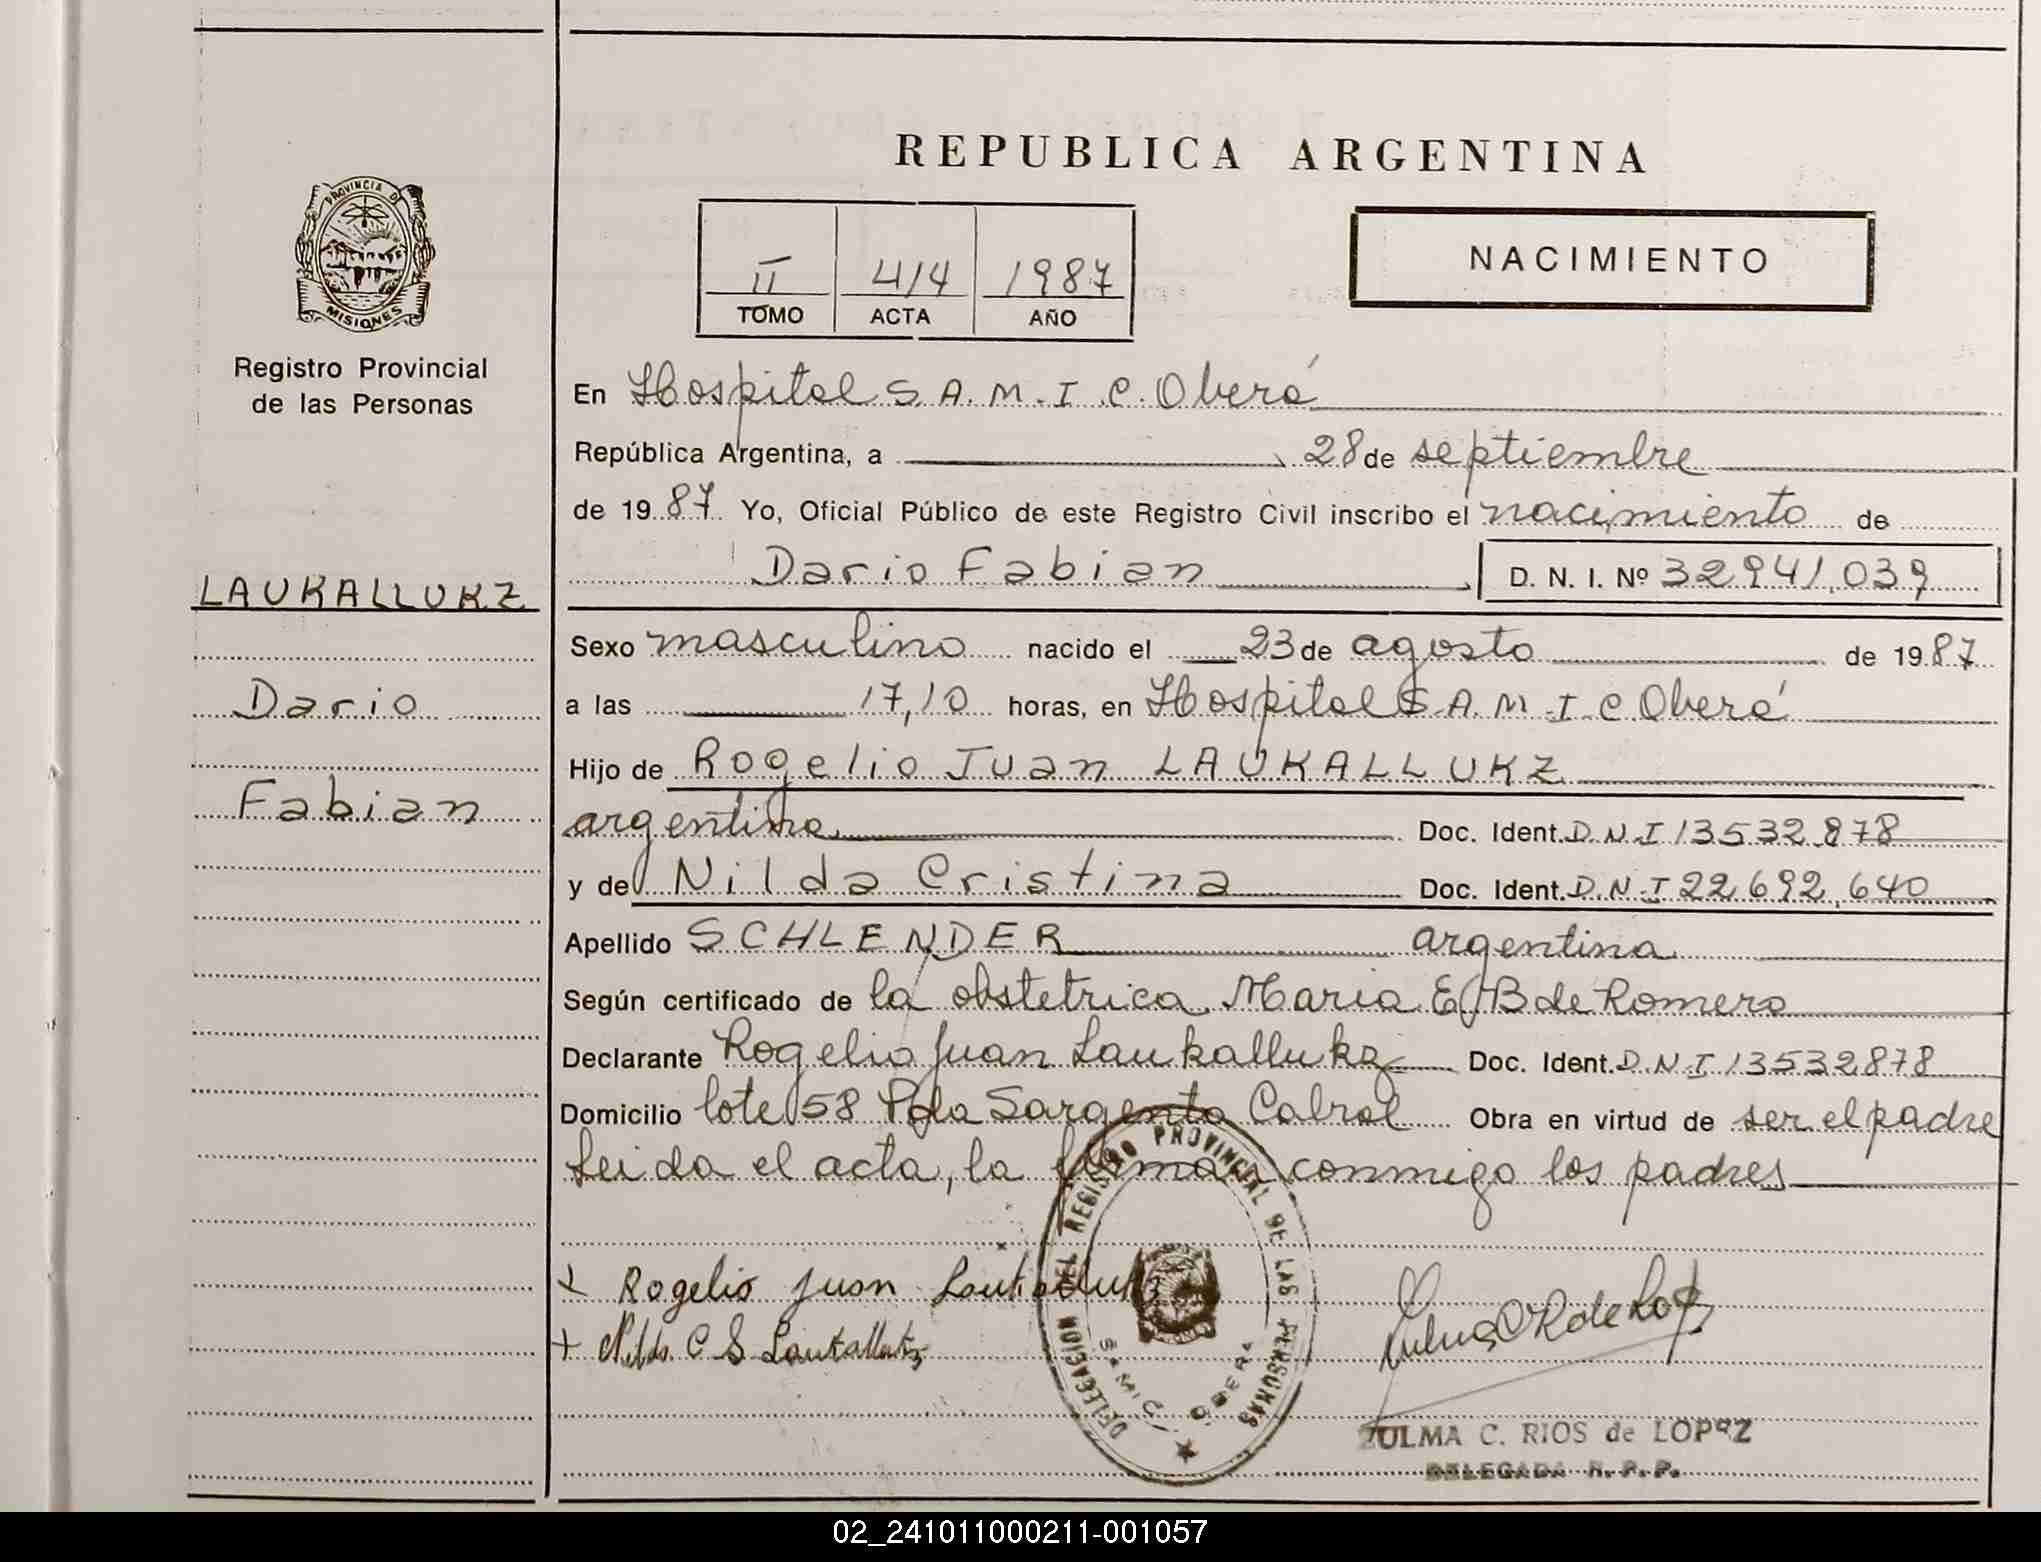 PROVINCIA DE
MISIONES
Registro Provincial
de las Personas
LAUKALLUKZ
Dario
Fabian
REPUBLICA ARGENTINA
II 414 1987
TOMO ACTA AÑO
NACIMIENTO
En Hospital S.A.M.I.C. Oberá
República Argentina, a 28 de septiembre
de 1987 Yo, Oficial Público de este Registro Civil inscribo el nacimiento de
Dario Fabian D. N. I. Nº 32941,039
Sexo masculino nacido el 23 de agosto de 1987
a las 17,10 horas, en Hospital S.A.M.I.C Oberá
Hijo de Rogelio Juan LAUKALLUKZ
argentino Doc. Ident. D.N.I 13532878
y de Nilda Cristina Doc. Ident. D.N.I 22.692.640
Apellido SCHLENDER argentina
Según certificado de la obstetrica Maria E. B de Romero
Declarante Rogelio Juan Laukallukz Doc. Ident. D.N.I 13532878
Domicilio lote 58 Pda Sargento Cabral Obra en virtud de ser el padre
Leida el acta, la firman conmigo los padres
Rogelio Juan Laukallukz
Nilda C S Laukallukz
DELEGACION DEL REGISTRO PROVINCIAL DE LAS PERSONAS
S.A.M.I.C. OBERA
ZULMA C. RIOS de LOPEZ
DELEGADA R.P.P.
02_241011000211-001057